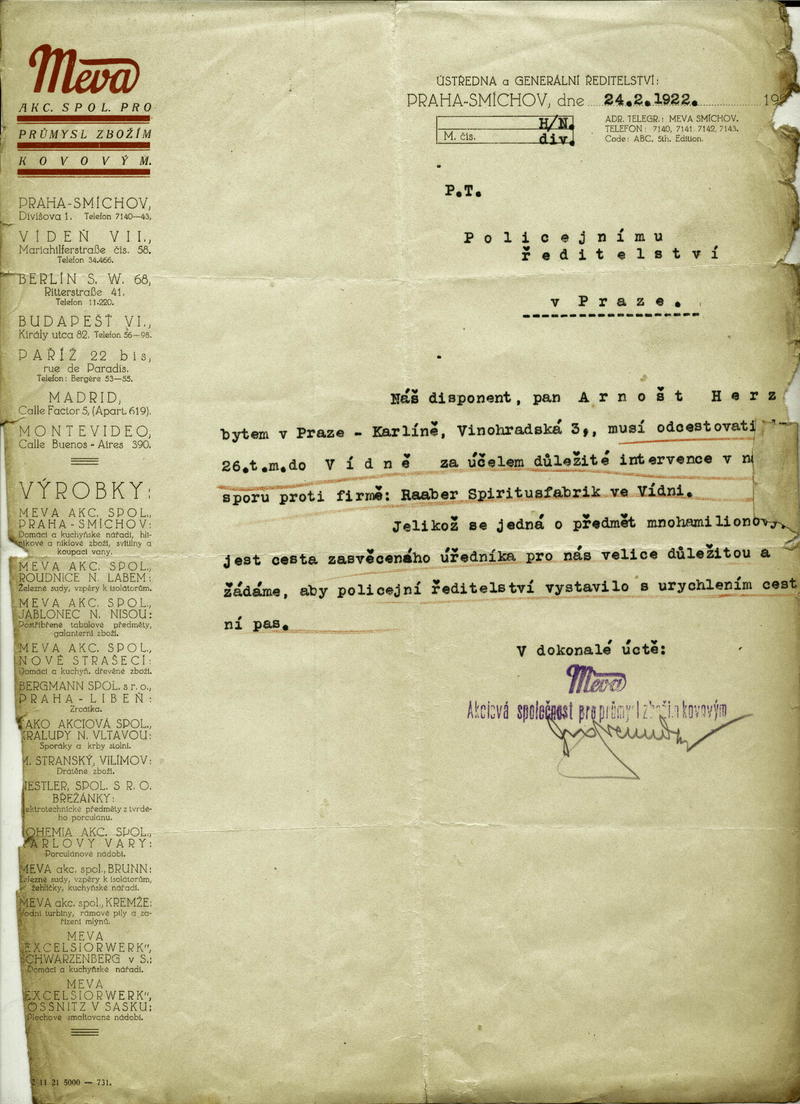 Meva
AKC. SPOL. PRO
PRŮMYSL ZBOŽÍM
KOVOVÝM.
PRAHA-SMÍCHOV,
Divišova 1. Telefon 7140—43,
VÍDEŇ VII.,
Mariahilferstraße čís. 58.
Telefon 34.466.
BERLÍN S. W. 68,
Ritterstraße 41.
Telefon 11.220.
BUDAPEŠŤ VI.,
Király utca 82. Telefon 56—98.
PAŘÍŽ 22 bis,
rue de Paradis.
Telefon: Bergère 53—55.
MADRID,
Calle Factor 5, (Apart. 619).
MONTEVIDEO,
Calle Buenos-Aires 390.
VÝROBKY:
MEVA AKC. SPOL.,
PRAHA-SMÍCHOV:
Domácí a kuchyňské nářadí, hli-
níkové a niklové zboží, svítilny a
koupací vany.
MEVA AKC. SPOL.,
ROUDNICE N. LABEM:
Železné sudy, vzpěry k isolátorům.
MEVA AKC. SPOL.,
JABLONEC N. NISOU:
Postříbřené tabulové předměty,
galanterní zboží.
MEVA AKC. SPOL.,
NOVÉ STRAŠECÍ:
Domácí a kuchyň. dřevěné zboží.
BERGMANN SPOL. s r. o.,
PRAHA-LIBEŇ:
Zrcátka.
AKO AKCIOVÁ SPOL.,
KRALUPY N. VLTAVOU:
Sporáky a krby stolní.
STRANSKÝ, VILÍMOV:
Drátěné zboží.
SPOL. S R. O.
BŘEŽÁNKY:
elektrotechnické předměty z tvrdé-
ho porculánu.
BOHEMIA AKC. SPOL.,
KARLOVY VARY:
Porculánové nádobí.
MEVA akc. spol., BRUNN:
Železné sudy, vzpěry k isolátorům,
žehličky, kuchyňské nářadí.
MEVA akc. spol., KREMŽE:
Vodní turbiny, rámové pily a za-
řízení mlýnů.
MEVA
EXCELSIORWERK",
SCHWARZENBERG v S.:
Domácí a kuchyňské nářadí.
MEVA
EXCELSIORWERK",
V SASKU:
Plechové smaltované nádobí.
11 21 5000 — 731.
ÚSTŘEDNA a GENERÁLNÍ ŘEDITELSTVÍ:
PRAHA-SMÍCHOV, dne 24.2.1922. 19
M. čís. H/N. div.
ADR. TELEGR.: MEVA SMÍCHOV.
TELEFON: 7140, 7141, 7142, 7143.
Code: ABC. 5th. Edition.
P.T.
Policejnímu
ředitelství
v Praze.
Náš disponent, pan Arnošt Herz
bytem v Praze - Karlíně, Vinohradská 3,, musí odcestovati
26.t.m.do Vídně za účelem důležité intervence v n
sporu proti firmě: Raaber Spiritusfabrik ve Vídni.
Jelikož se jedná o předmět mnohamilionový,
jest cesta zasvěceného úředníka pro nás velice důležitou a
žádáme, aby policejní ředitelství vystavilo s urychlením cest
ní pas.
V dokonalé úctě:
Meva
Akciová společnost pro průmysl zbožím kovovým